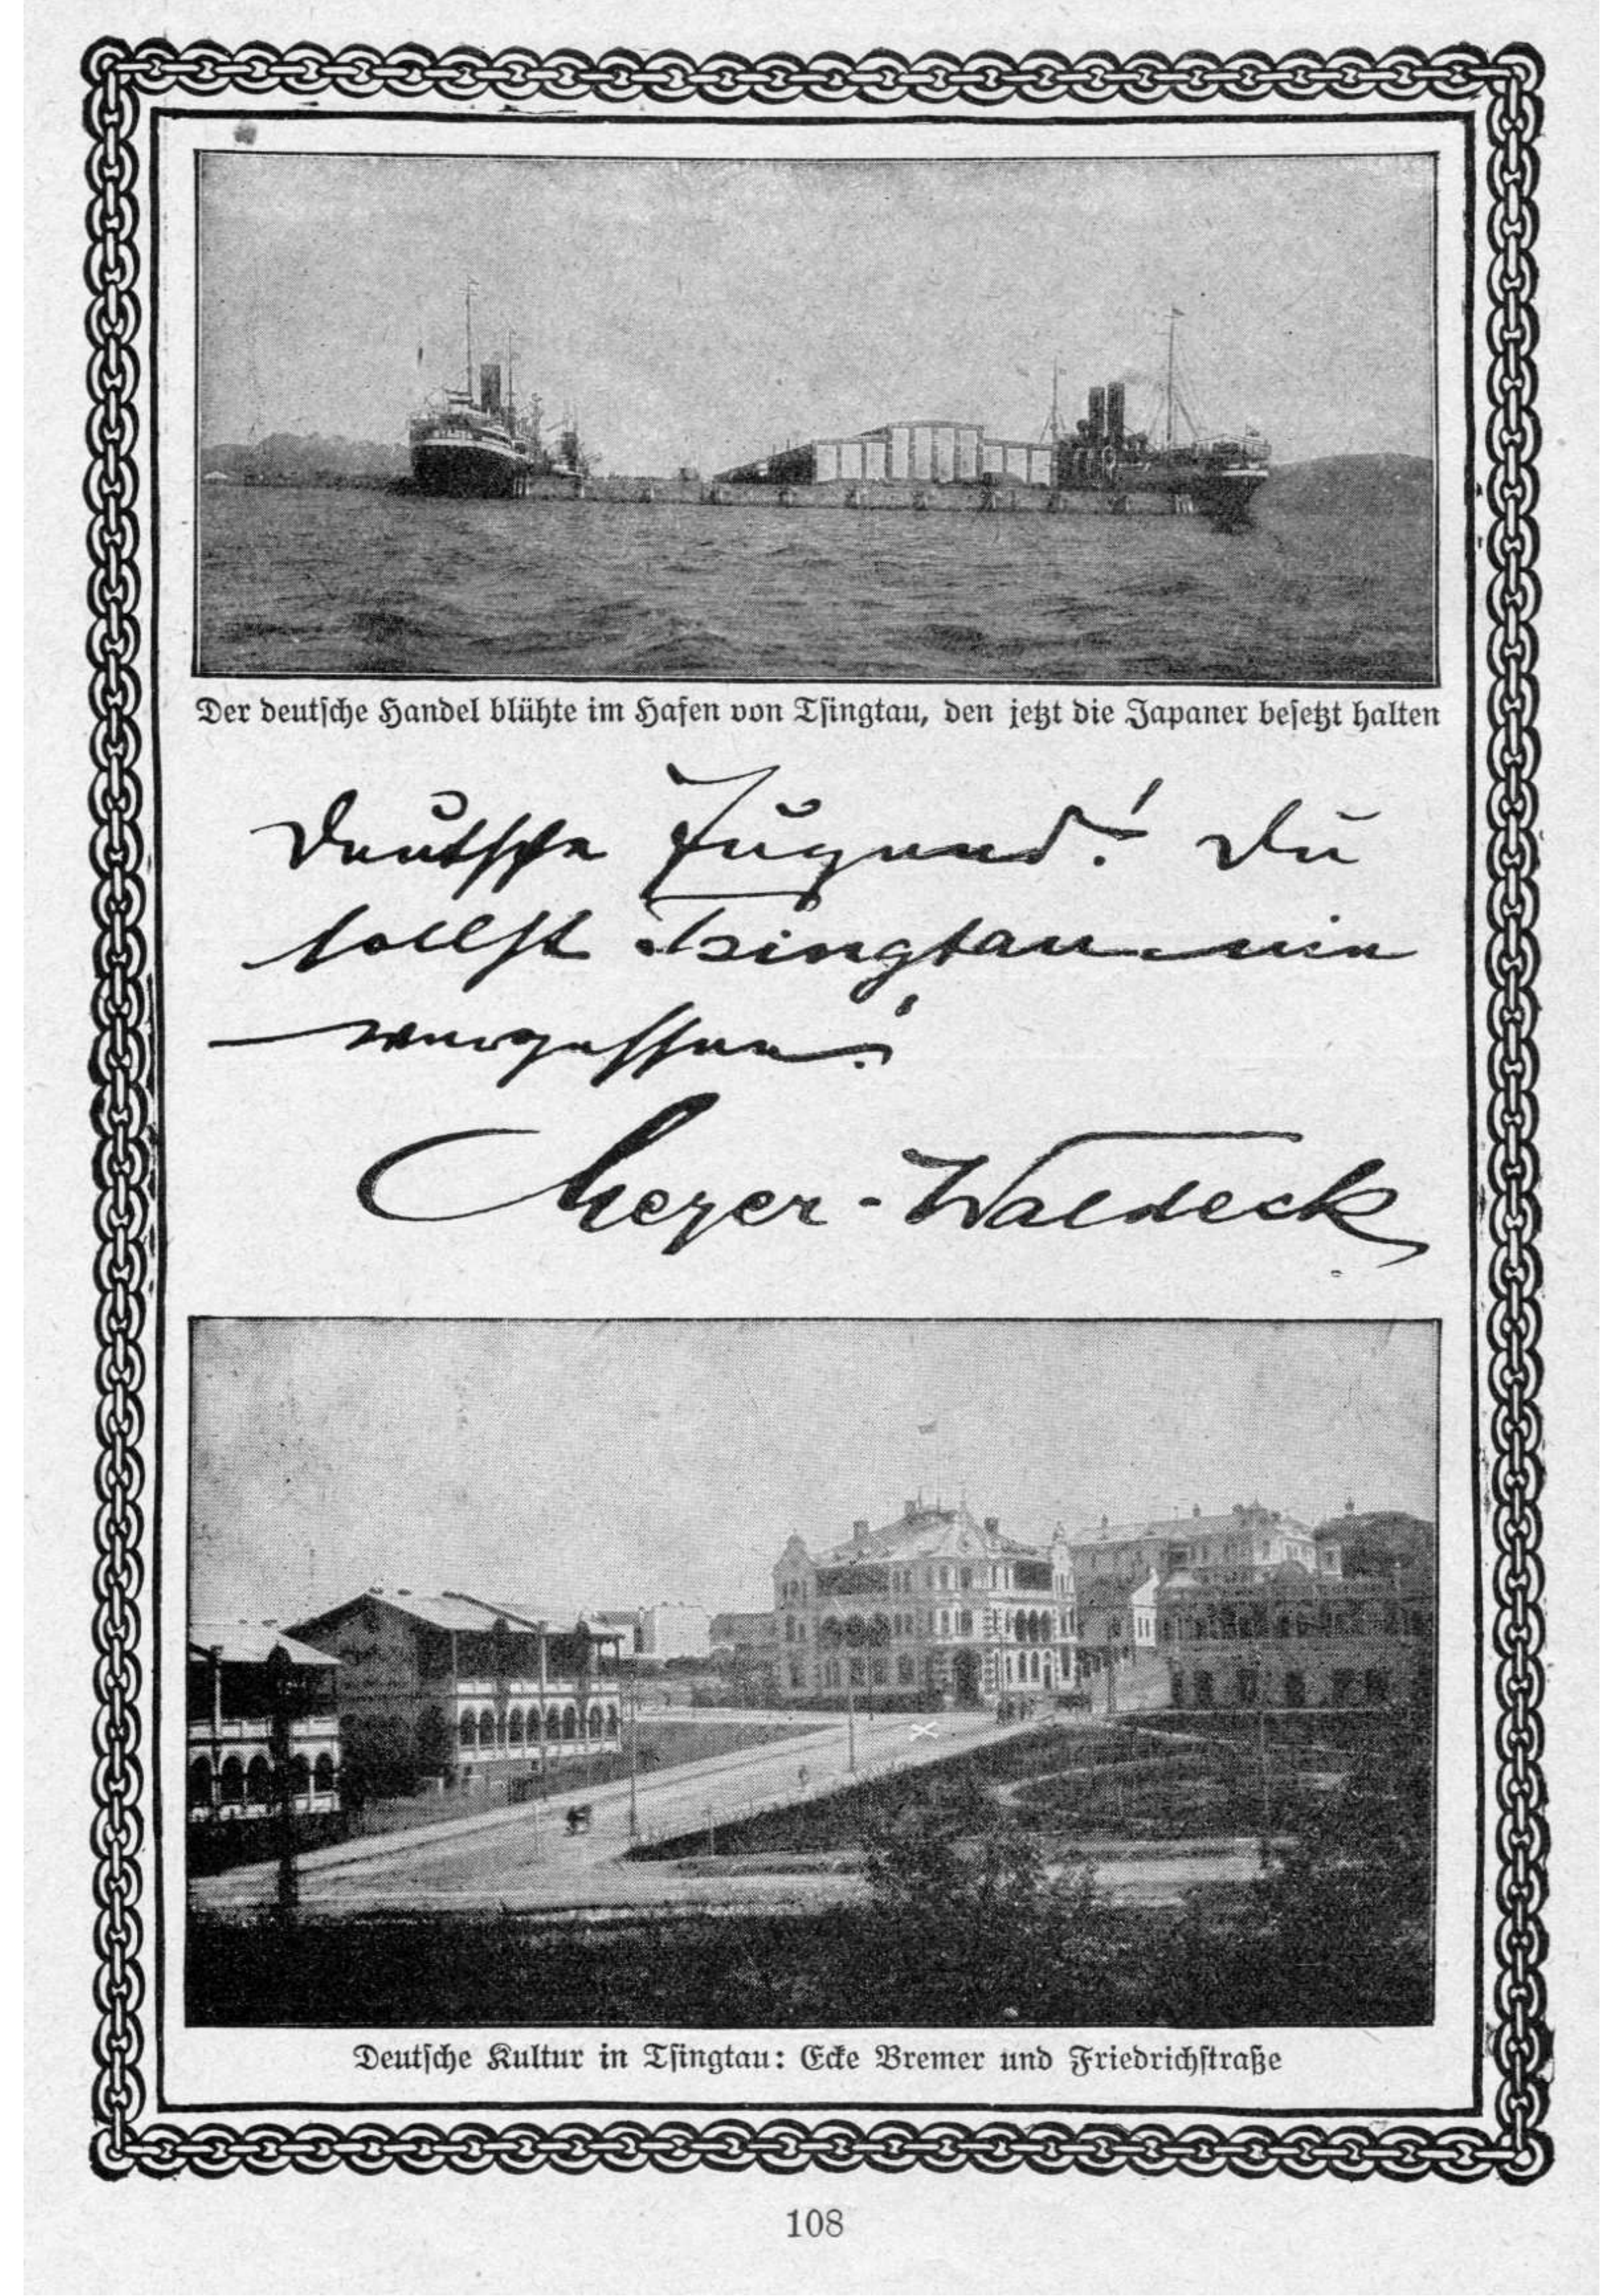 Der deutsche Handel blühte im Hafen von Tsingtau, den jetzt die Japaner besetzt halten
Deutsche Jugend! Du
sollst Tsingtau nie
vergessen!
Meyer-Waldeck
Deutsche Kultur in Tsingtau: Ecke Bremer und Friedrichstraße
108